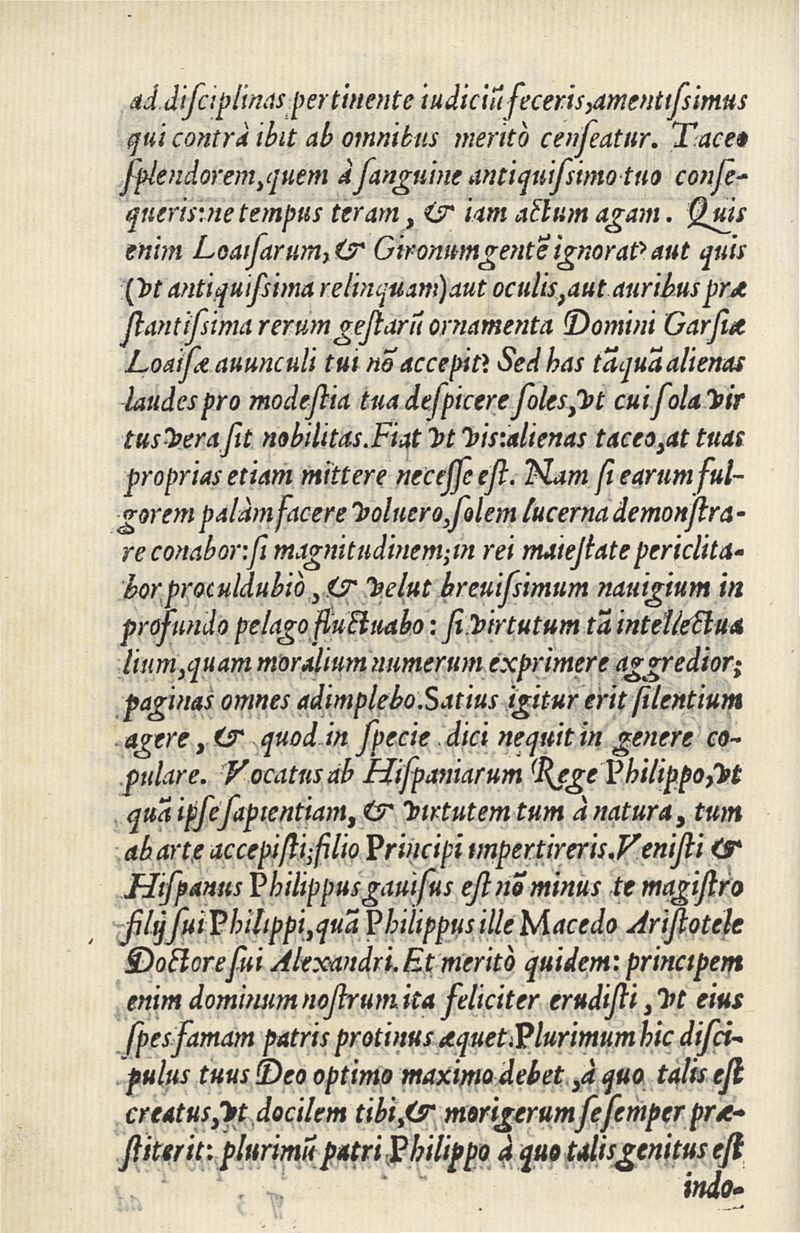 ad disciplinas pertinente iudiciū feceris, amentissimus
qui contrà ibit ab omnibus meritò censeatur. Taceo
splendorem, quem à sanguine antiquissimo tuo conse-
queris: ne tempus teram, & iam actum agam. Quis
enim Loaisarum, & Gironum gentē ignorat? aut quis
(vt antiquissima relinquam) aut oculis, aut auribus præ
stantissima rerum gestarū ornamenta Domini Garsiæ
Loaisæ auunculi tui nō accepit? Sed has tāquā alienas
laudes pro modestia tua despicere soles, vt cui sola vir
tus vera sit nobilitas. Fiat vt vis: alienas taceo, at tuas
proprias etiam mittere necesse est. Nam si earum ful-
gorem palàm facere voluero, solem lucerna demonstra-
re conabor: si magnitudinem; in rei maiestate periclita-
bor proculdubiò, & velut breuissimum nauigium in
profundo pelago fluctuabo: si virtutum tā intellectua
lium, quam moralium numerum exprimere aggredior;
paginas omnes adimplebo. Satius igitur erit silentium
agere, & quod in specie dici nequit in genere co-
pulare. Vocatus ab Hispaniarum Rege Philippo, vt
quā ipse sapientiam, & virtutem tum à natura, tum
ab arte accepisti; filio Principi impertireris. Venisti &
Hispanus Philippus gauisus est nō minus te magistro
filij sui Philippi, quā Philippus ille Macedo Aristotele
Doctore sui Alexandri. Et meritò quidem: principem
enim dominum nostrum ita feliciter erudisti, vt eius
spes famam patris protinus æquet. Plurimum hic disci-
pulus tuus Deo optimo maximo debet, à quo talis est
creatus, vt docilem tibi, & morigerum se semper præ-
stiterit: plurimū patri Philippo à quo talis genitus est
indo-